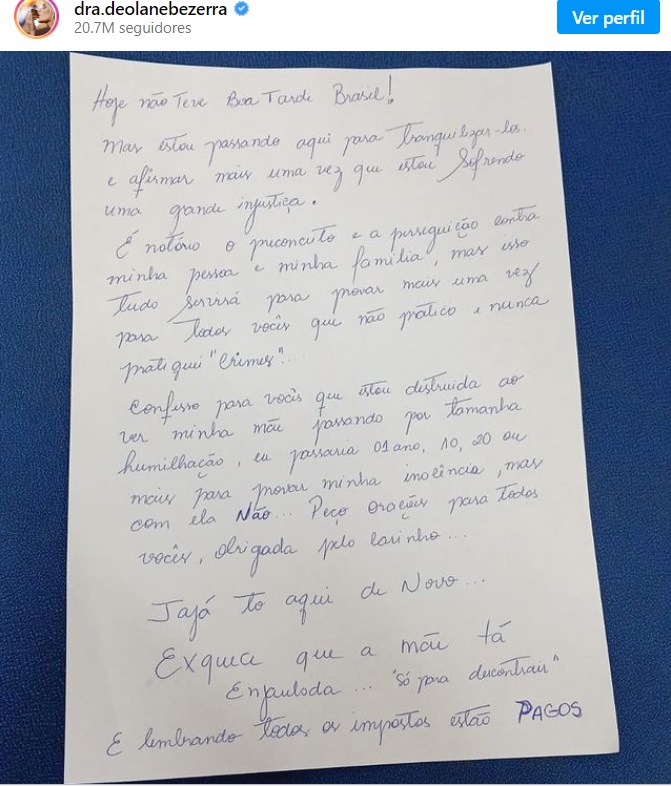 dra.deolanebezerra
20.7M seguidores
Ver perfil
Hoje não Teve Boa Tarde Brasil!
Mas estou passando aqui para tranquilizar-los.
e afirmar mais uma vez que estou Sofrendo
uma grande injustiça.
É notório o preconceito e a perseguição contra
minha pessoa e minha família, mas isso
tudo servirá para provar mais uma vez
para todos vocês que não pratico e nunca
pratiquei "Crimes"...
Confesso para vocês que estou destruida ao
ver minha mãe passando por tamanha
humilhação, eu passaria 01 ano, 10, 20 ou
mais para provar minha inocência, mas
com ela Não... Peço orações para todos
vocês, obrigada pelo carinho...
Jajá to aqui de Novo...
Exquece que a mãe tá
Enjaulada... "Só para descontrair"
E lembrando todos os impostos estão PAGOS